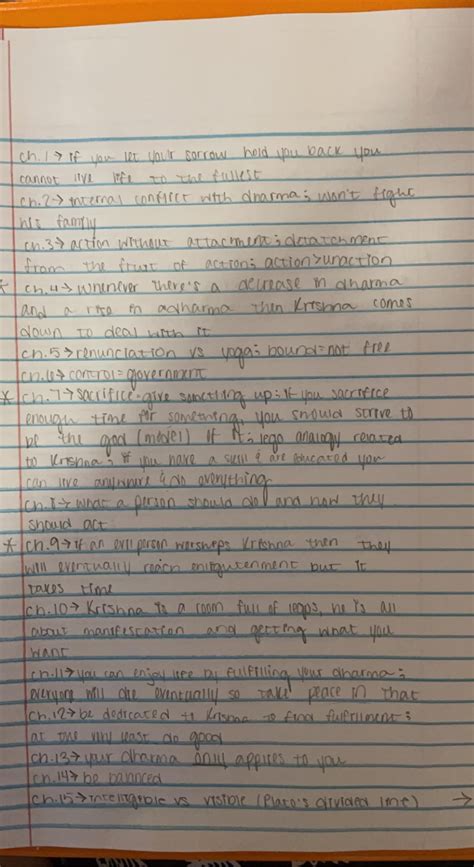 ch.1→ if you let your sorrow hold you back you
cannot live life to the fullest
ch.2→ internal conflict with dharma; won't fight
his family
ch.3→ action without attachment; detatchment
from the fruit of action; action>unaction
* ch.4→ whenever there's a decrease in dharma
and a rise in adharma then Krishna comes
down to deal with it
ch.5→ renunciation vs yoga; bound=not free
ch.6→ control=government
* ch.7→ sacrifice-give something up; if you sacrifice
enough time for something, you should strive to
be the god (model) if it; lego analogy related
to Krishna; if you have a skill & are educated you
can live anywhere & do everything
ch.8→ what a person should do and how they
should act
* ch.9→ if an evil person worsheps Krishna then they
will eventually reach enlightenment but it
takes time
ch.10→ Krishna is a room full of legos, he is all
about manifestation and getting what you
want
ch.11→ you can enjoy life by fulfilling your dharma;
everyone will die eventually so take peace in that
ch.12→ be dedicated to Krishna to find fulfillment;
at the very least do good
ch.13→ your dharma only applies to you
ch.14→ be balanced
ch.15→ intelligible vs visible (Plato's divided line) →